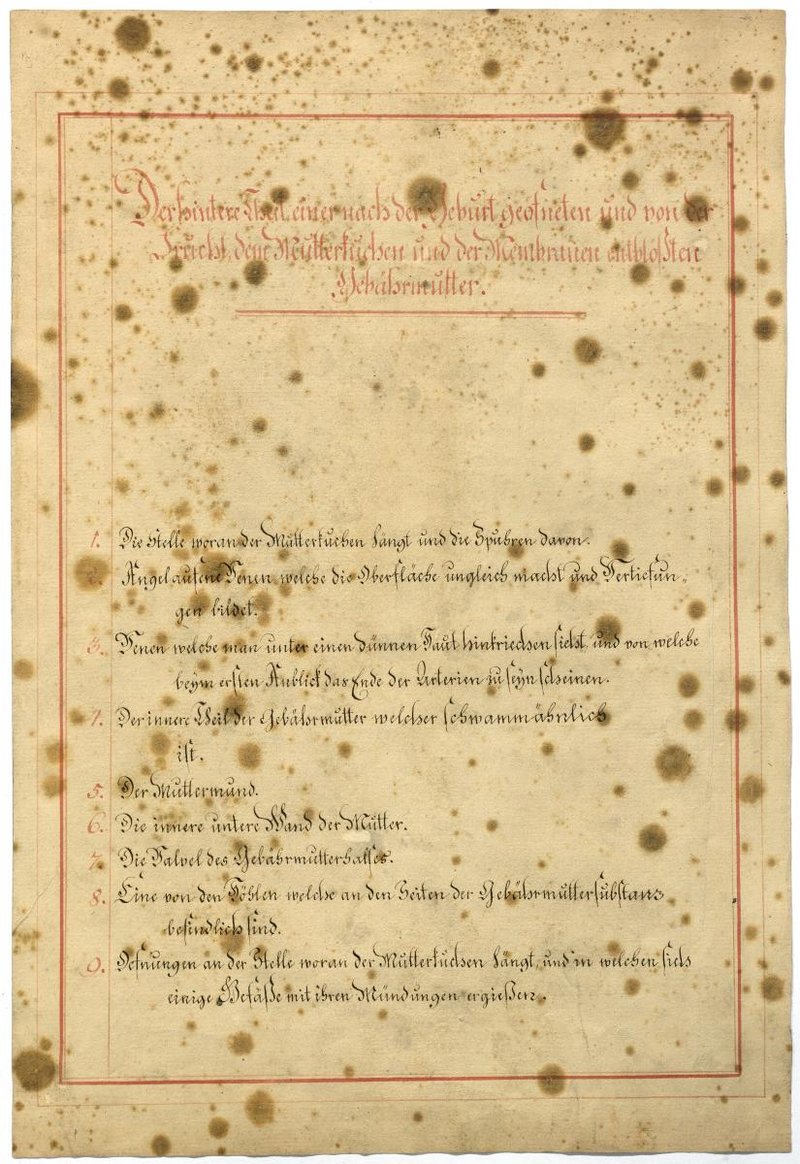 Der hintere Theil einer nach der Geburt geöfneten und von der
Frucht, dem Mutterkuchen und der Membranen entblößten
Gebährmutter.
1. Die Stelle woran der Mutterkuchen hängt und die Spuhren davon.
2. Angelaufene Venen welche die Oberfläche ungleich macht und Vertiefun-
gen bildet.
3. Venen welche man unter einen dünnen Haut hinkriechen sieht, und von welche
beym ersten Anblick das Ende der Arterien zu seyn scheinen.
4. Der innere Theil der Gebährmutter welcher schwammähnlich
ist.
5. Der Muttermund.
6. Die innere untere Wand der Mutter.
7. Die Valvel des Gebährmutterhalses.
8. Eine von den Höhlen welche an den Seiten der Gebährmuttersubstanz
befindlich sind.
9. Oefnungen an der Stelle woran der Mutterkuchen hängt, und in welchen sich
einige Gefäße mit ihren Mündungen ergießen.